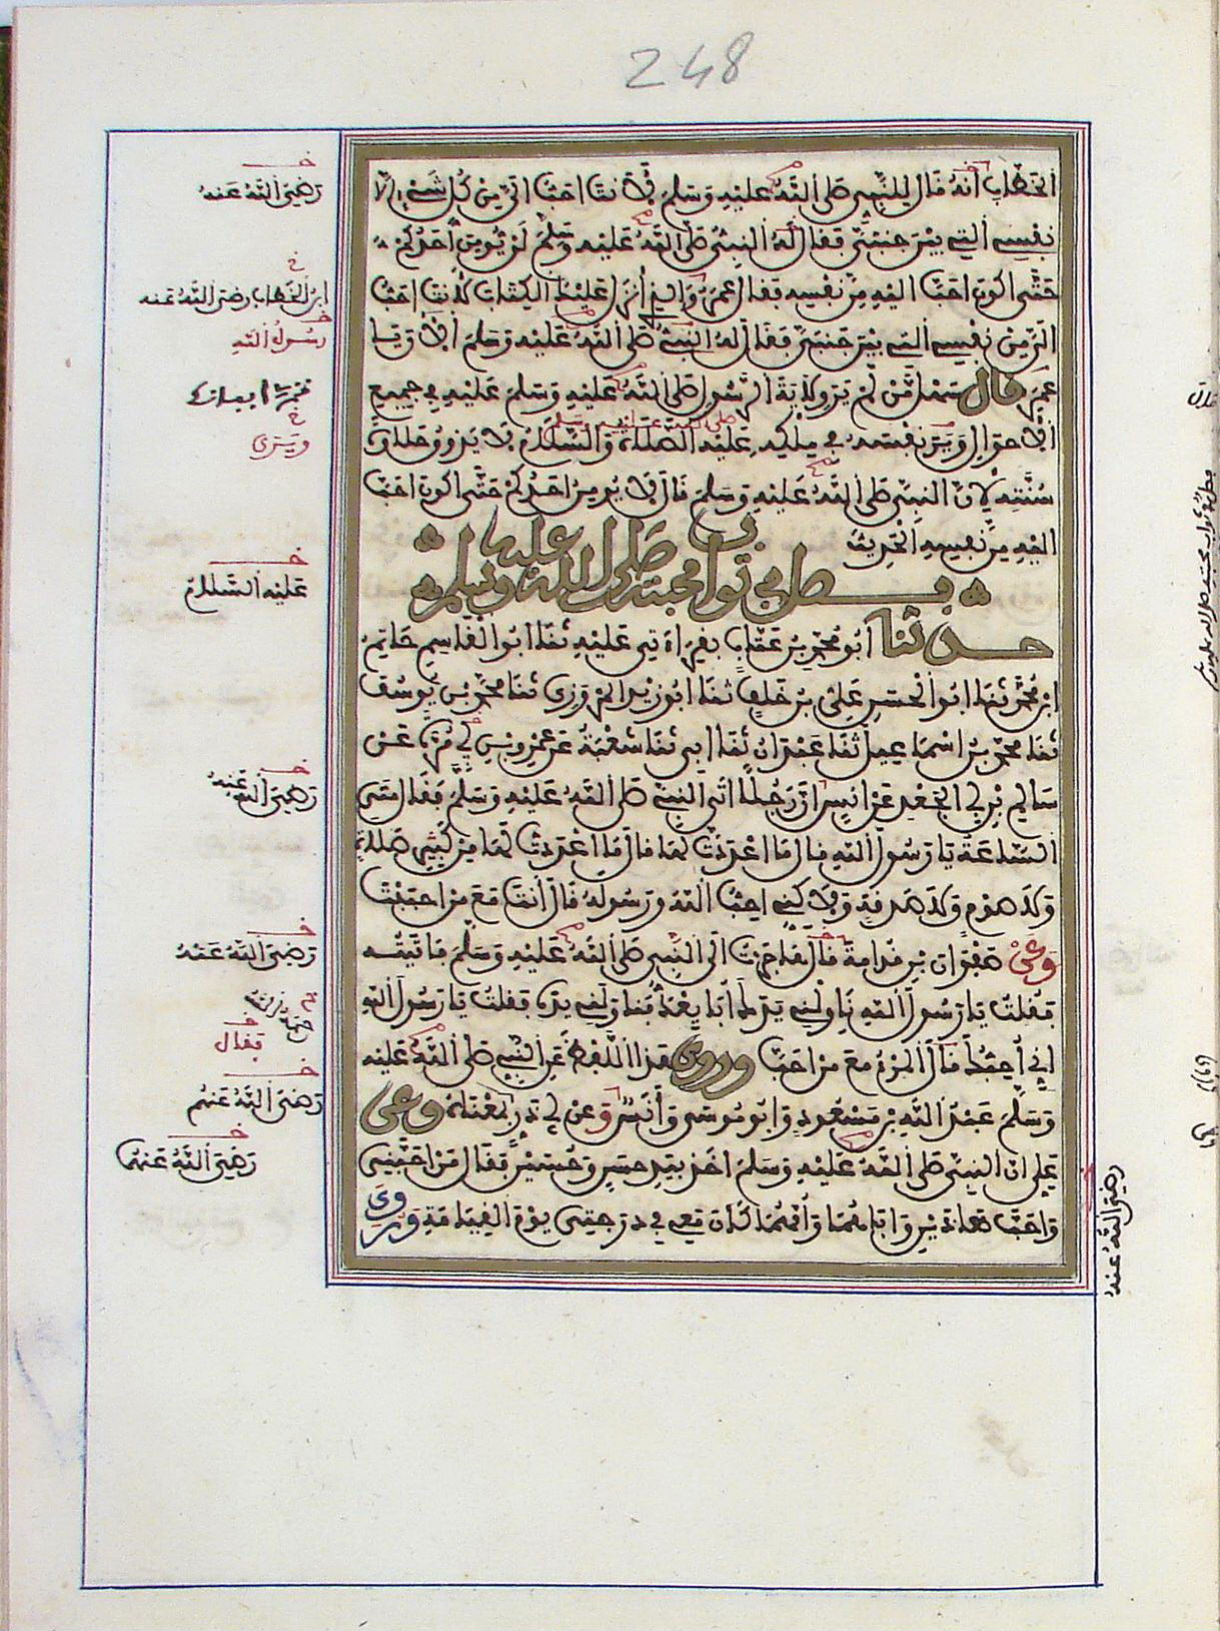 248
الخطاب أنه قال للنبي صلى الله عليه وسلم لأنت احب الي من كل شيء الا
نفسي التي بين جنبي فقال له النبي صلى الله عليه وسلم لن يومن أحدكم
حتى اكون احب اليه من نفسه فقال عمر والذي أنزل عليك الكتاب لأنت احب
الي من نفسي التي بين جنبي فقال له النبي صلى الله عليه وسلم الآن يا
عمر قال سهل من لم ير ولاية الرسول صلى الله عليه وسلم عليه في جميع
الأحوال وير نفسه في ملكه عليه الصلاة والسلام لا يذوق حلاوة
سنته لان النبي صلى الله عليه وسلم قال لا يومن احدكم حتى اكون احب
اليه من نفسه الحديث
فصل في ثواب محبته صلى الله عليه وسلم
حدثنا أبو محمد بن عتاب بقراءتي عليه ثنا ابو القاسم حاتم
ابن محمد ثنا ابو الحسن علي بن خلف ثنا ابو زيد المروزي ثنا محمد بن يوسف
ثنا محمد بن اسماعيل ثنا عبدان ثنا ابي ثنا شعبة عن عمرو بن مرة عن
سالم بن ابي الجعد عن انس ان رجلا اتى النبي صلى الله عليه وسلم فقال متى
الساعة يا رسول الله قال ما اعددت لها قال ما اعددت لها من كثير صلاة
ولا صوم ولا صدقة ولاكني احب الله ورسوله قال أنت مع من احببت
وعن صفوان بن قدامة قال هاجرت الى النبي صلى الله عليه وسلم فاتيته
فقلت يا رسول الله ناولني يدك أبايعك فناولني يده فقلت يا رسول الله
إني أحبك قال المرء مع من احب وروى هذا اللفظ عن النبي صلى الله عليه
وسلم عبد الله بن مسعود وابو موسى وأنس وعن ابي ذر بمعناه وعن
علي ان النبي صلى الله عليه وسلم اخذ بيد حسن وحسين فقال من احبني
واحب هاذين واباهما وأمهما كان معي في درجتي يوم القيامة وروي
خ
رضي الله عنه
خ
ابن الخطاب رضي الله عنه
خ
رسول الله
خ
ويرى
خ
عليه السلام
خ
رضي الله عنه
خ
رضي الله عنه
خ
فقال
خ
رضي الله عنهم
خ
رضي الله عنهما
رضي الله عنه